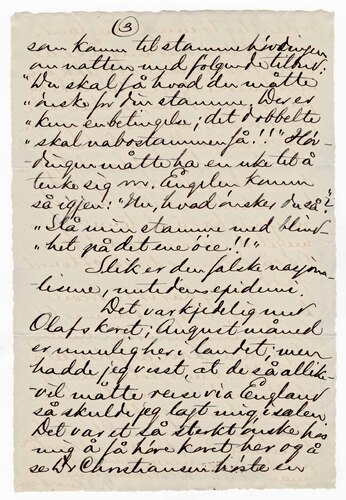 3
som kom til stammehøvdingen
om natten med følgende tilbud:
"Du skal få hvad du måtte
"ønske for din stamme. Der er
"kun en betingelse; det dobbelte
"skal nabostammen få!!" Høv-
dingen måtte ha en uke til å
tenke sig om. Engelen kom
så igjen: "Nu, hvad ønsker du så?"
"Slå min stamme med blind-
"het på det ene øie!!"
Slik er den falske nasjona-
lisme, nutidens epidemi.
Det var kjedelig med
Olafskoret; August måned
er umulig her i landet; men
hadde jeg visst, at de så allik-
vel måtte reise via England
så skulde jeg lagt mig i selen.
Det var et så sterkt ønske hos
mig å få høre koret her og å
se Dr Christiansen høste en